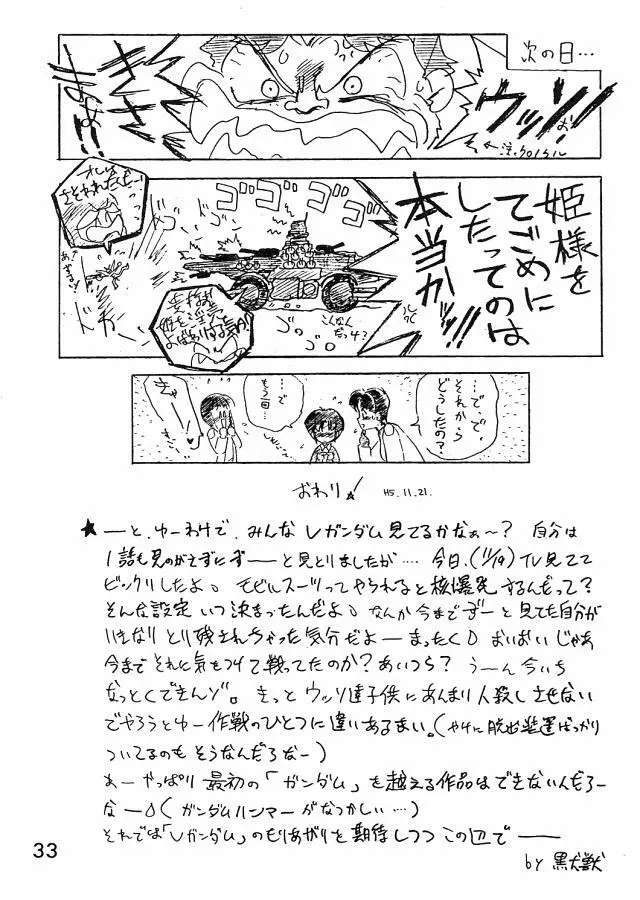 次の日…
ウッソ!!
きさまぁ!!
←注.クロノクル
姫様を
てごめに
したってのは
本当かッ!!
ゴゴゴゴ
オレは
ドカーン
ゴロゴロ
こんなん
だっけ?
…で、で、
それから
どうしたの?
…で
もう一回…
きゃー!♥
おわり! H5.11.21.
★―と、ゆーわけで、みんなVガンダム見てるかなぁ〜? 自分は
1話も見のがさずにずーーと見とりましたが…. 今日、(11/19) TV見てて
ビックリしたよ。モビルスーツってやられると核爆発するんだって?
そんな設定いつ決まったんだよ。なんか今までずーと見てた自分が
いきなりとり残されちゃった気分だよーまったく。おいおいじゃあ
今までそれに気をつけて戦ってたのか?あいつら? うーん今いち
なっとくできんゾ。きっとウッソ達子供にあんまり人殺しさせない
でやろうとゆー作戦のひとつに違いあるまい。(やけに脱出装置ばっかり
ついてるのもそうなんだろなー)
あーやっぱり最初の「ガンダム」を越える作品はできないんだろー
なー。(ガンダムハンマーがなつかしい…)
それでは「Vガンダム」のもりあがりを期待しつつこの辺で――
by 黒犬獣
33